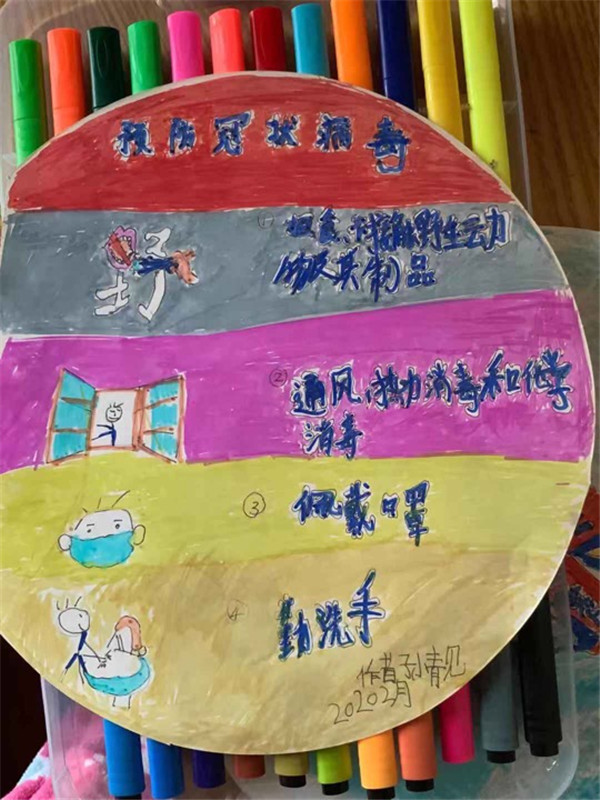 预防冠状病毒
野
① 拒食、不接触野生动
物及其制品
② 通风、热力消毒和化学
消毒
③ 佩戴口罩
④ 勤洗手
作者
20202月